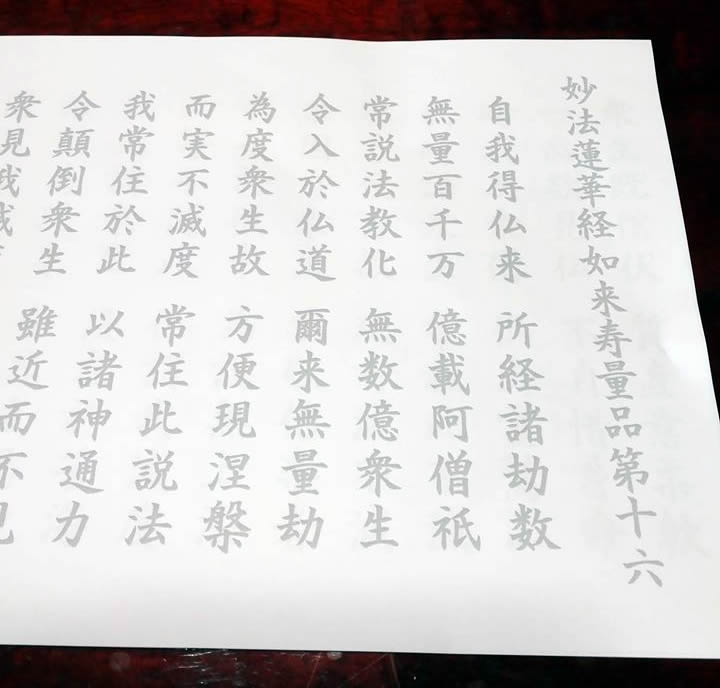 妙法蓮華経如来寿量品第十六
自我得仏来 所経諸劫数
無量百千万 億載阿僧祇
常説法教化 無数億衆生
令入於仏道 爾来無量劫
為度衆生故 方便現涅槃
而実不滅度 常住此説法
我常住於此 以諸神通力
令顛倒衆生 雖近而不見
衆見我滅